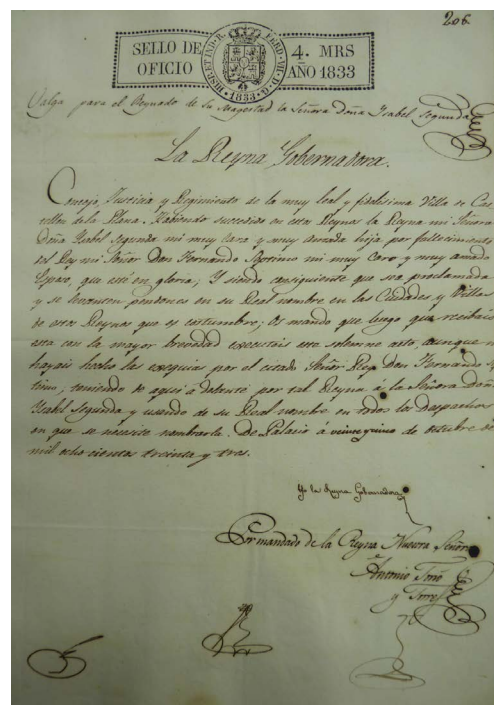 206.
SELLO DE OFICIO
HISP. ET IND. R. FERD. VII. D. G. 1833
4. MRS AÑO 1833
Valga para el Reynado de Su Magestad la Señora Doña Ysabel Segunda
La Reyna Gobernadora.
Concejo, Justicia y Regimiento de la muy leal y fidelisima Villa de Cas
tellon de la Plana. Habiendo sucedido en estos Reynos la Reyna mi Señora
Doña Ysabel Segunda mi muy cara y muy amada hija por fallecimiento
del Rey mi Señor Don Fernando Septimo mi muy Caro y muy amado
Esposo, que esté en gloria; Y siendo consiguiente que sea proclamada
y se levanten pendones en su Real nombre en las Ciudades y Villas
de estos Reynos que es costumbre; Os mando que luego que recibais
esta con la mayor brevedad executeis este solemne acto, aunque no
hayais hecho las exequias por el citado Señor Rey Don Fernando Sep
timo; teniendo de aqui á delante por tal Reyna á la Señora Doña
Ysabel Segunda y usando de su Real nombre en todos los despachos
en que se necesite nombrarla. De Palacio á veinte y cinco de octubre de
mil ocho cientos treinta y tres.
Yo la Reyna Gobernadora
Por mandado de la Reyna Nuestra Señora
Antonio
y Torres